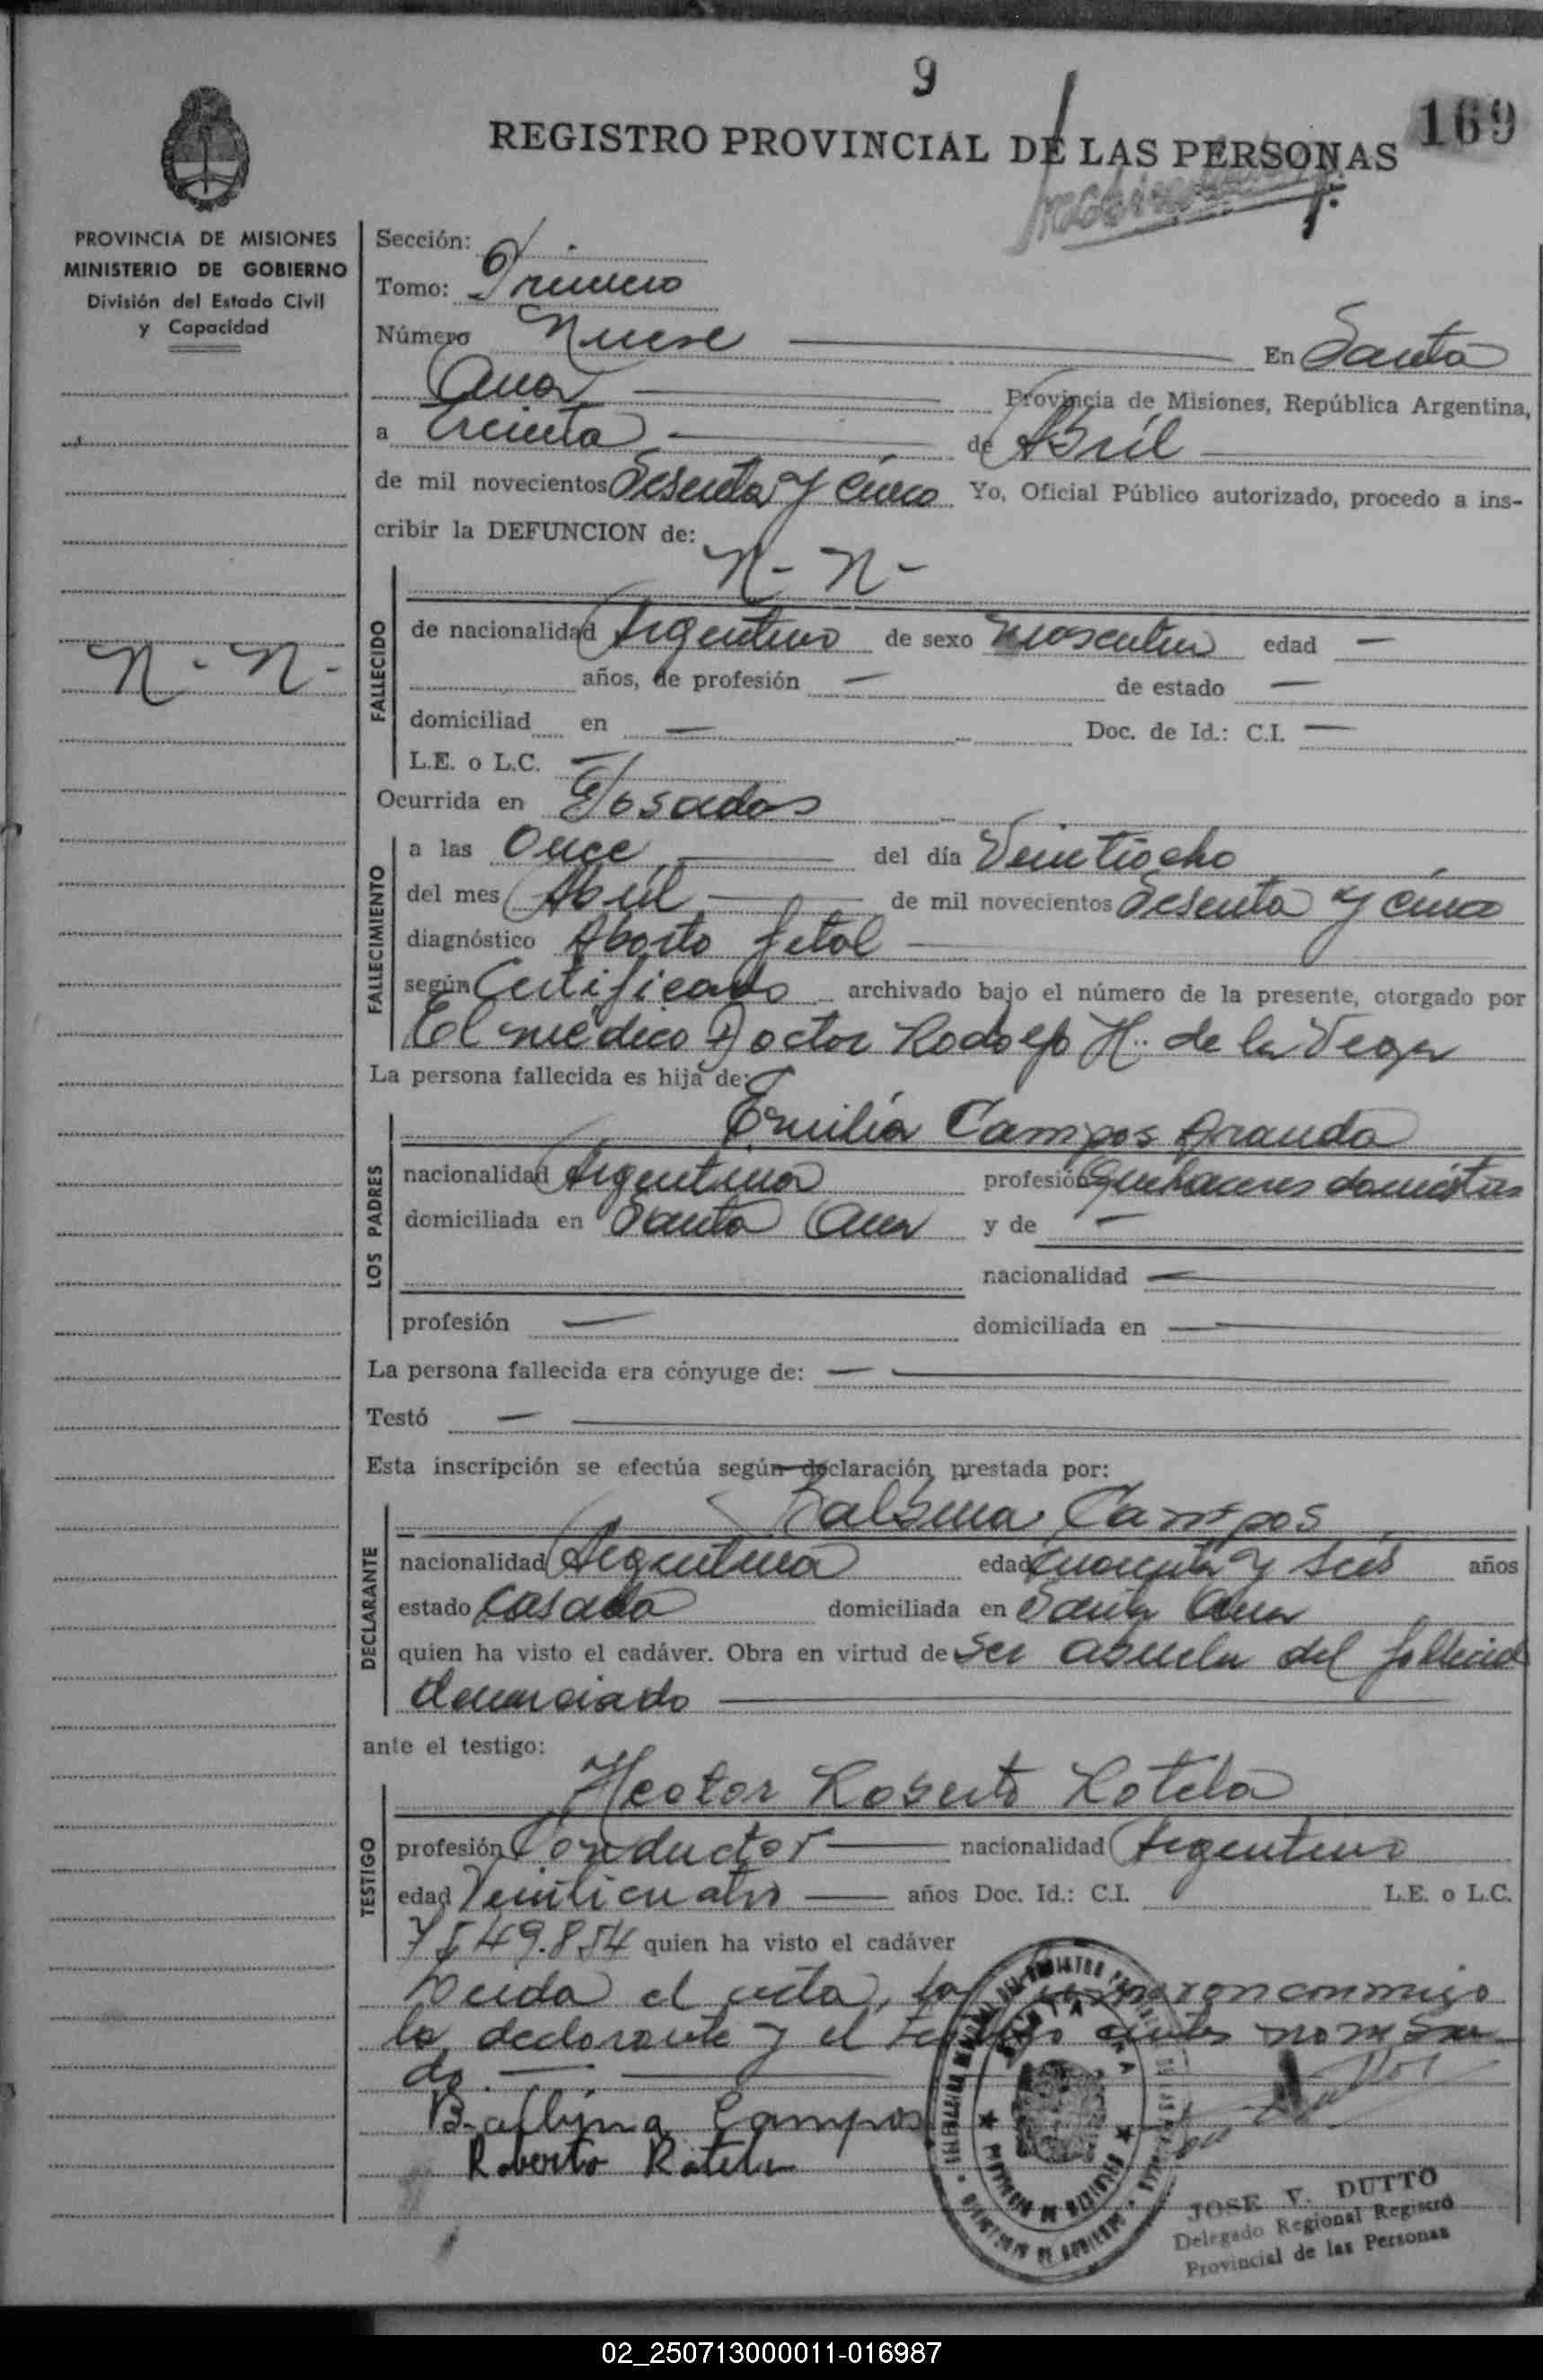 9
169
REGISTRO PROVINCIAL DE LAS PERSONAS
PROVINCIA DE MISIONES
MINISTERIO DE GOBIERNO
División del Estado Civil
y Capacidad
Sección:
Tomo: Primero
Número Nueve En Santa
Ana Provincia de Misiones, República Argentina,
a treinta de Abril
de mil novecientos Sesenta y cinco Yo, Oficial Público autorizado, procedo a ins-
cribir la DEFUNCION de:
N - N -
N - N -
FALLECIDO
de nacionalidad Argentino de sexo masculino edad —
años, de profesión — de estado —
domiciliad en — Doc. de Id.: C.I. —
L.E. o L.C. —
Ocurrida en Posadas
FALLECIMIENTO
a las Once del día Veintiocho
del mes Abril de mil novecientos Sesenta y cinco
diagnóstico Aborto fetal
según Certificado archivado bajo el número de la presente, otorgado por
El médico Doctor Rodolfo H. de la Vega
La persona fallecida es hija de:
LOS PADRES
Emilia Campos Aranda
nacionalidad Argentina profesión quehaceres domésticos
domiciliada en Santa Ana y de —
nacionalidad —
profesión — domiciliada en —
La persona fallecida era cónyuge de: —
Testó —
Esta inscripción se efectúa según declaración prestada por:
DECLARANTE
Balbina Campos
nacionalidad Argentina edad cuarenta y seis años
estado casada domiciliada en Santa Ana
quien ha visto el cadáver. Obra en virtud de ser abuela del fallecido
denunciado
ante el testigo:
TESTIGO
Hector Roberto Rotela
profesión Conductor nacionalidad Argentino
edad Veinticuatro años Doc. Id.: C.I. L.E. o L.C.
7549.854 quien ha visto el cadáver
Leida el acta, la firmaron conmigo
la declarante y el testigo antes nombra
do.
Balbina Campos
Roberto Rotela
JOSE V. DUTTO
Delegado Regional Registro
Provincial de las Personas
02_250713000011-016987